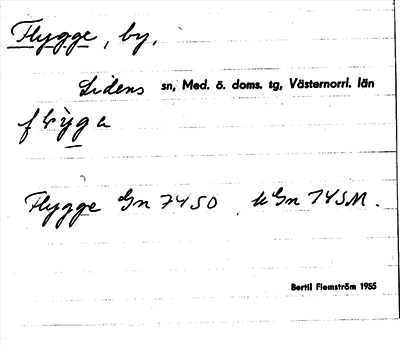 Flygge, by.
Lidens sn, Med. ö. doms. tg, Västernorrl. län
Flygge Gn 7450 Gn 745M.
Bertil Flemström 1955